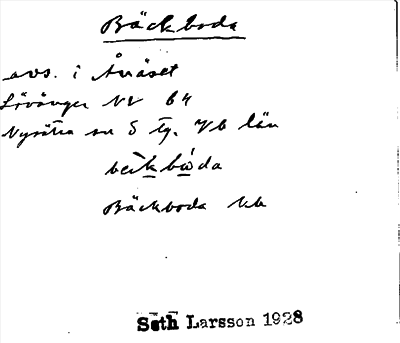 Bäckboda
avs. i Ånäset
Lövånger NV 64
Nysätra sn S tg. Vb län
bèkbǻda
Bäckboda kb
Seth Larsson 1928